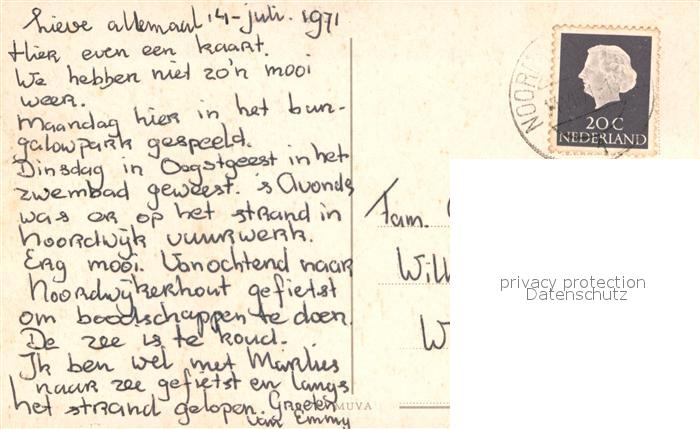 lieve allemaal 14-juli. 1971
Hier even een kaart.
We hebben niet zo'n mooi
weer.
Maandag hier in het bun-
galowpark gespeeld.
Dinsdag in Oegstgeest in het
zwembad geweest. 's Avonds
was er op het strand in
Noordwijk vuurwerk.
Erg mooi. Vanochtend naar
Noordwijkerhout gefietst
om boodschappen te doen.
De zee is te koud.
Ik ben wel met Marlies
naar zee gefietst en langs
het strand gelopen. Groeten
van Emmy
MUVA
NOOR
20C
NEDERLAND
Fam.
Will
W
privacy protection
Datenschutz